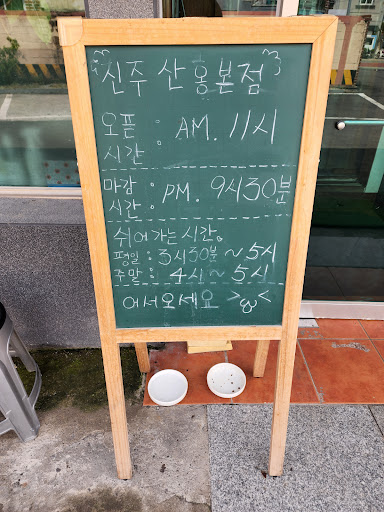 신주 산 옹본점
오픈 시간 : AM. 11시
마감 시간 : PM. 9시30분
쉬어가는시간。
평일 : 3시30분 ~ 5시
주말 : 4시 ~ 5시
어서오세요 >ω<